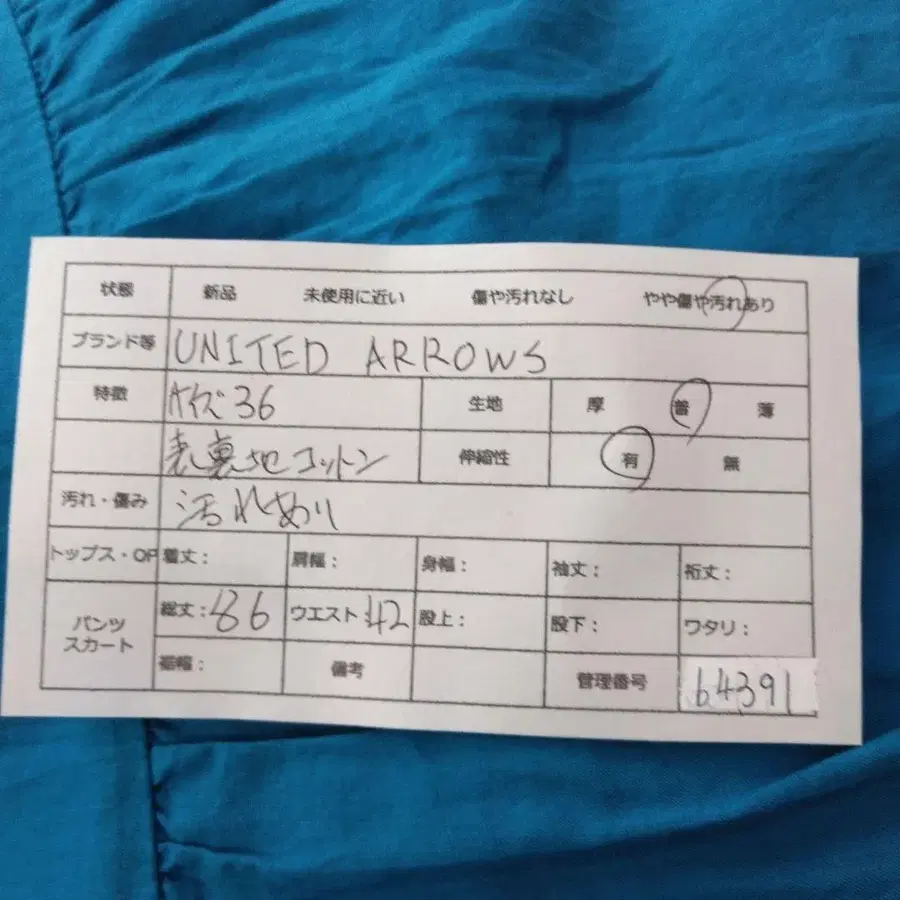 状態 新品 未使用に近い 傷や汚れなし やや傷や汚れあり
ブランド等 UNITED ARROWS
特徴 サイズ36 生地 厚 普 薄
表裏地コットン 伸縮性 有 無
汚れ・傷み 汚れあり
トップス・OP 着丈: 肩幅: 身幅: 袖丈: 裄丈:
パンツ スカート 総丈:86 ウエスト42 股上: 股下: ワタリ:
裾幅: 備考 管理番号 64391